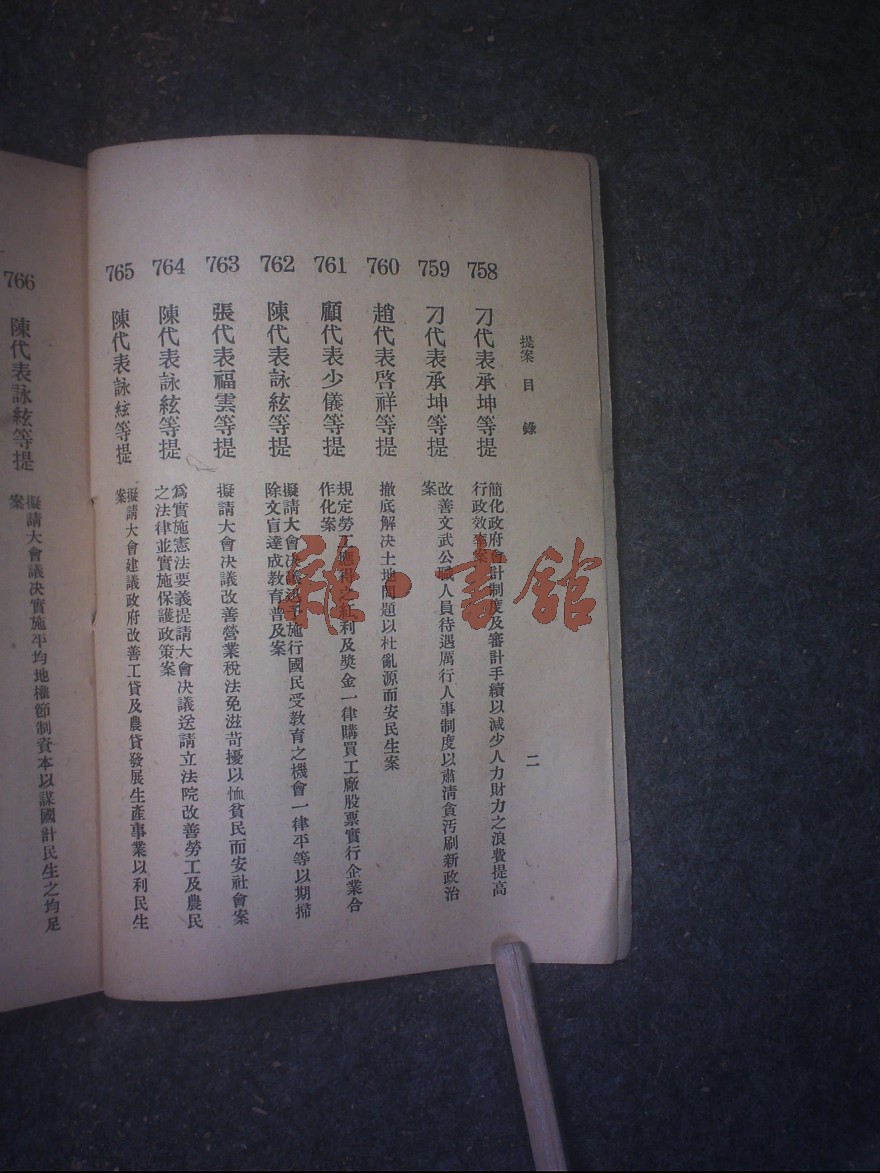 提案目錄
二
758 刁代表承坤等提
簡化政府會計制度及審計手續以減少人力財力之浪費提高
行政效率案
759 刁代表承坤等提
改善文武公職人員待遇厲行人事制度以肅清貪污刷新政治
案
760 趙代表啓祥等提
撤底解決土地問題以杜亂源而安民生案
761 顧代表少儀等提
規定勞工應得之紅利及奬金一律購買工廠股票實行企業合
作化案
762 陳代表詠絃等提
擬請大會決議迅予施行國民受教育之機會一律平等以期掃
除文盲達成教育普及案
763 張代表福雲等提
擬請大會決議改善營業稅法免滋苛擾以恤貧民而安社會案
764 陳代表詠絃等提
爲實施憲法要義提請大會決議送請立法院改善勞工及農民
之法律並實施保護政策案
765 陳代表詠絃等提
擬請大會建議政府改善工貸及農貸發展生產事業以利民生
案
766 陳代表詠絃等提
擬請大會議決實施平均地權節制資本以謀國計民生之均足
案
雜·書館